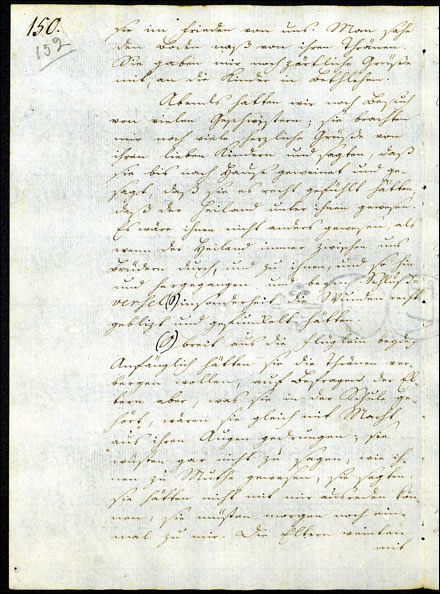 150.
152
sie im Frieden von uns. Man sahe
den Boden naß von ihren Thränen.
Sie gaben mir noch zärtliche Grüße
mit, an die Kinder in Bethlehem.
Abends hatten wir noch Besuch
von vielen Geschwistern; sie brachten
mir noch viele herzliche Grüße von
ihren lieben Kindern und sagten, daß
sie bis nach Hause geweinet und ge-
sagt, daß sie es recht gefühlt hätten,
daß der Heiland unter ihnen gewesen.
Es wäre ihnen nicht anders gewesen, als
wenn der Heiland immer zwischen uns
Brüdern durch, und zu ihnen, und so hin
und hergegangen und beym Schluß-
versel insonderheit die Wunden recht
geblizt und gefunkelt hätten
breit aus die Flüglein beyde
Anfänglich hätten sie die Thränen ver-
bergen wollen, auf Befragen der El-
tern aber, was sie in der Schule ge-
hört, wären sie gleich mit Macht
aus ihren Augen gedrungen; sie
wüsten gar nicht zu sagen, wie ih-
nen zu Muthe gewesen, sie sagten
sie hätten nicht mit mir ausreden kön-
nen, sie müsten morgen noch ein-
mal zu mir. Die Eltern weinten
mit